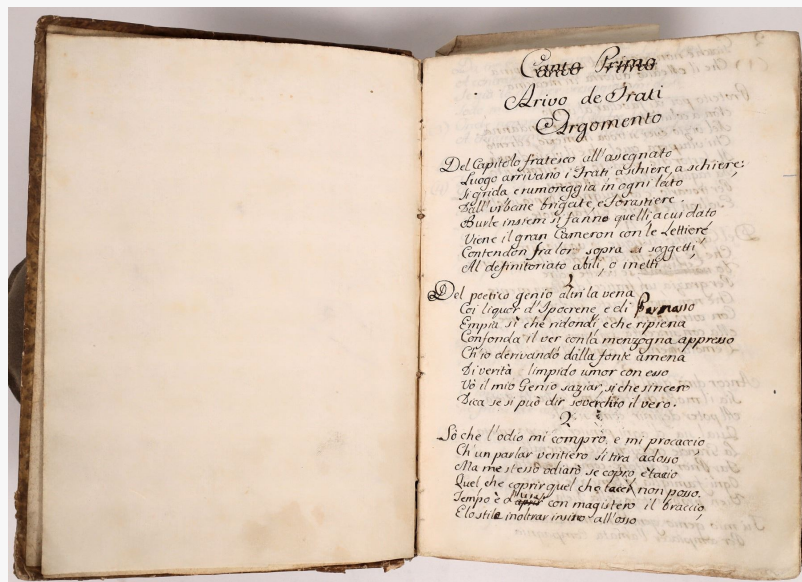 Canto Primo
Arivo de Frati
Argomento
Del Capitolo fratesco all'asegnato
Luogo arrivano i Frati a schiere, a schiere;
Si grida e rumoreggia in ogni lato
Dall'urbane brigate, e forastiere.
Burle insiem si fanno quelli a cui dato
Viene il gran Cameron con le Lettiere
Contendon fra lor sopra si soggetti
Al definitoriato abili, o inetti
1
Del poetico genio altri la vena
Coi liquor d'Ipocrene, e di Parnasso
Empia sì che ridondi, e che ripiena
Confonda il ver con la menzogna appresso
Ch'io derivando dalla fonte amena
Di verità limpido umor con esso
Vò il mio Genio saziar, si che sincero
Dica se si può dir soverchio il vero.
2
Sò che l'odio mi compro, e mi procaccio
Ch'un parlar veritiero si tira adosso
Ma me stesso odiarò se copro, e taccio
Quel che coprir quel che tacer non posso.
Tempo è d' con magistero il braccio
E lo stile inoltrar insino all'osso